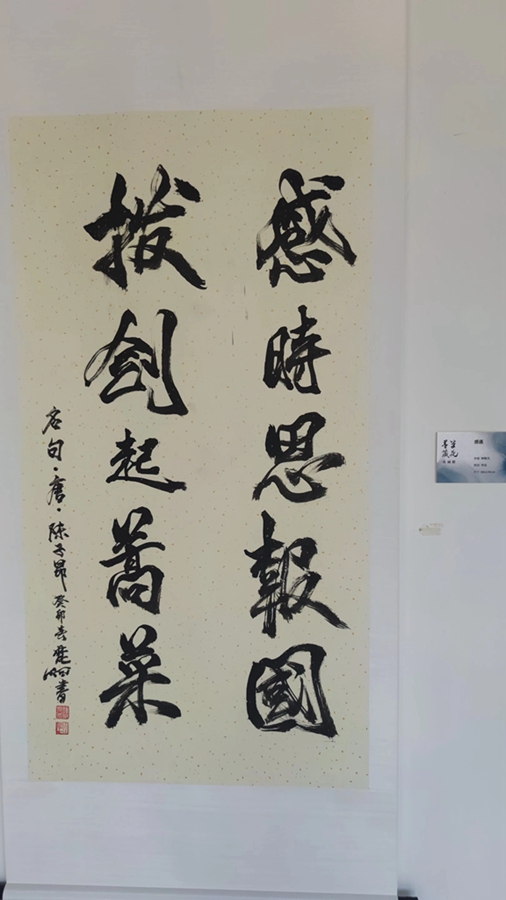 感時思報國
拔劍起蒿萊
名句·唐·陳子昂 癸卯春楚 書
感遇